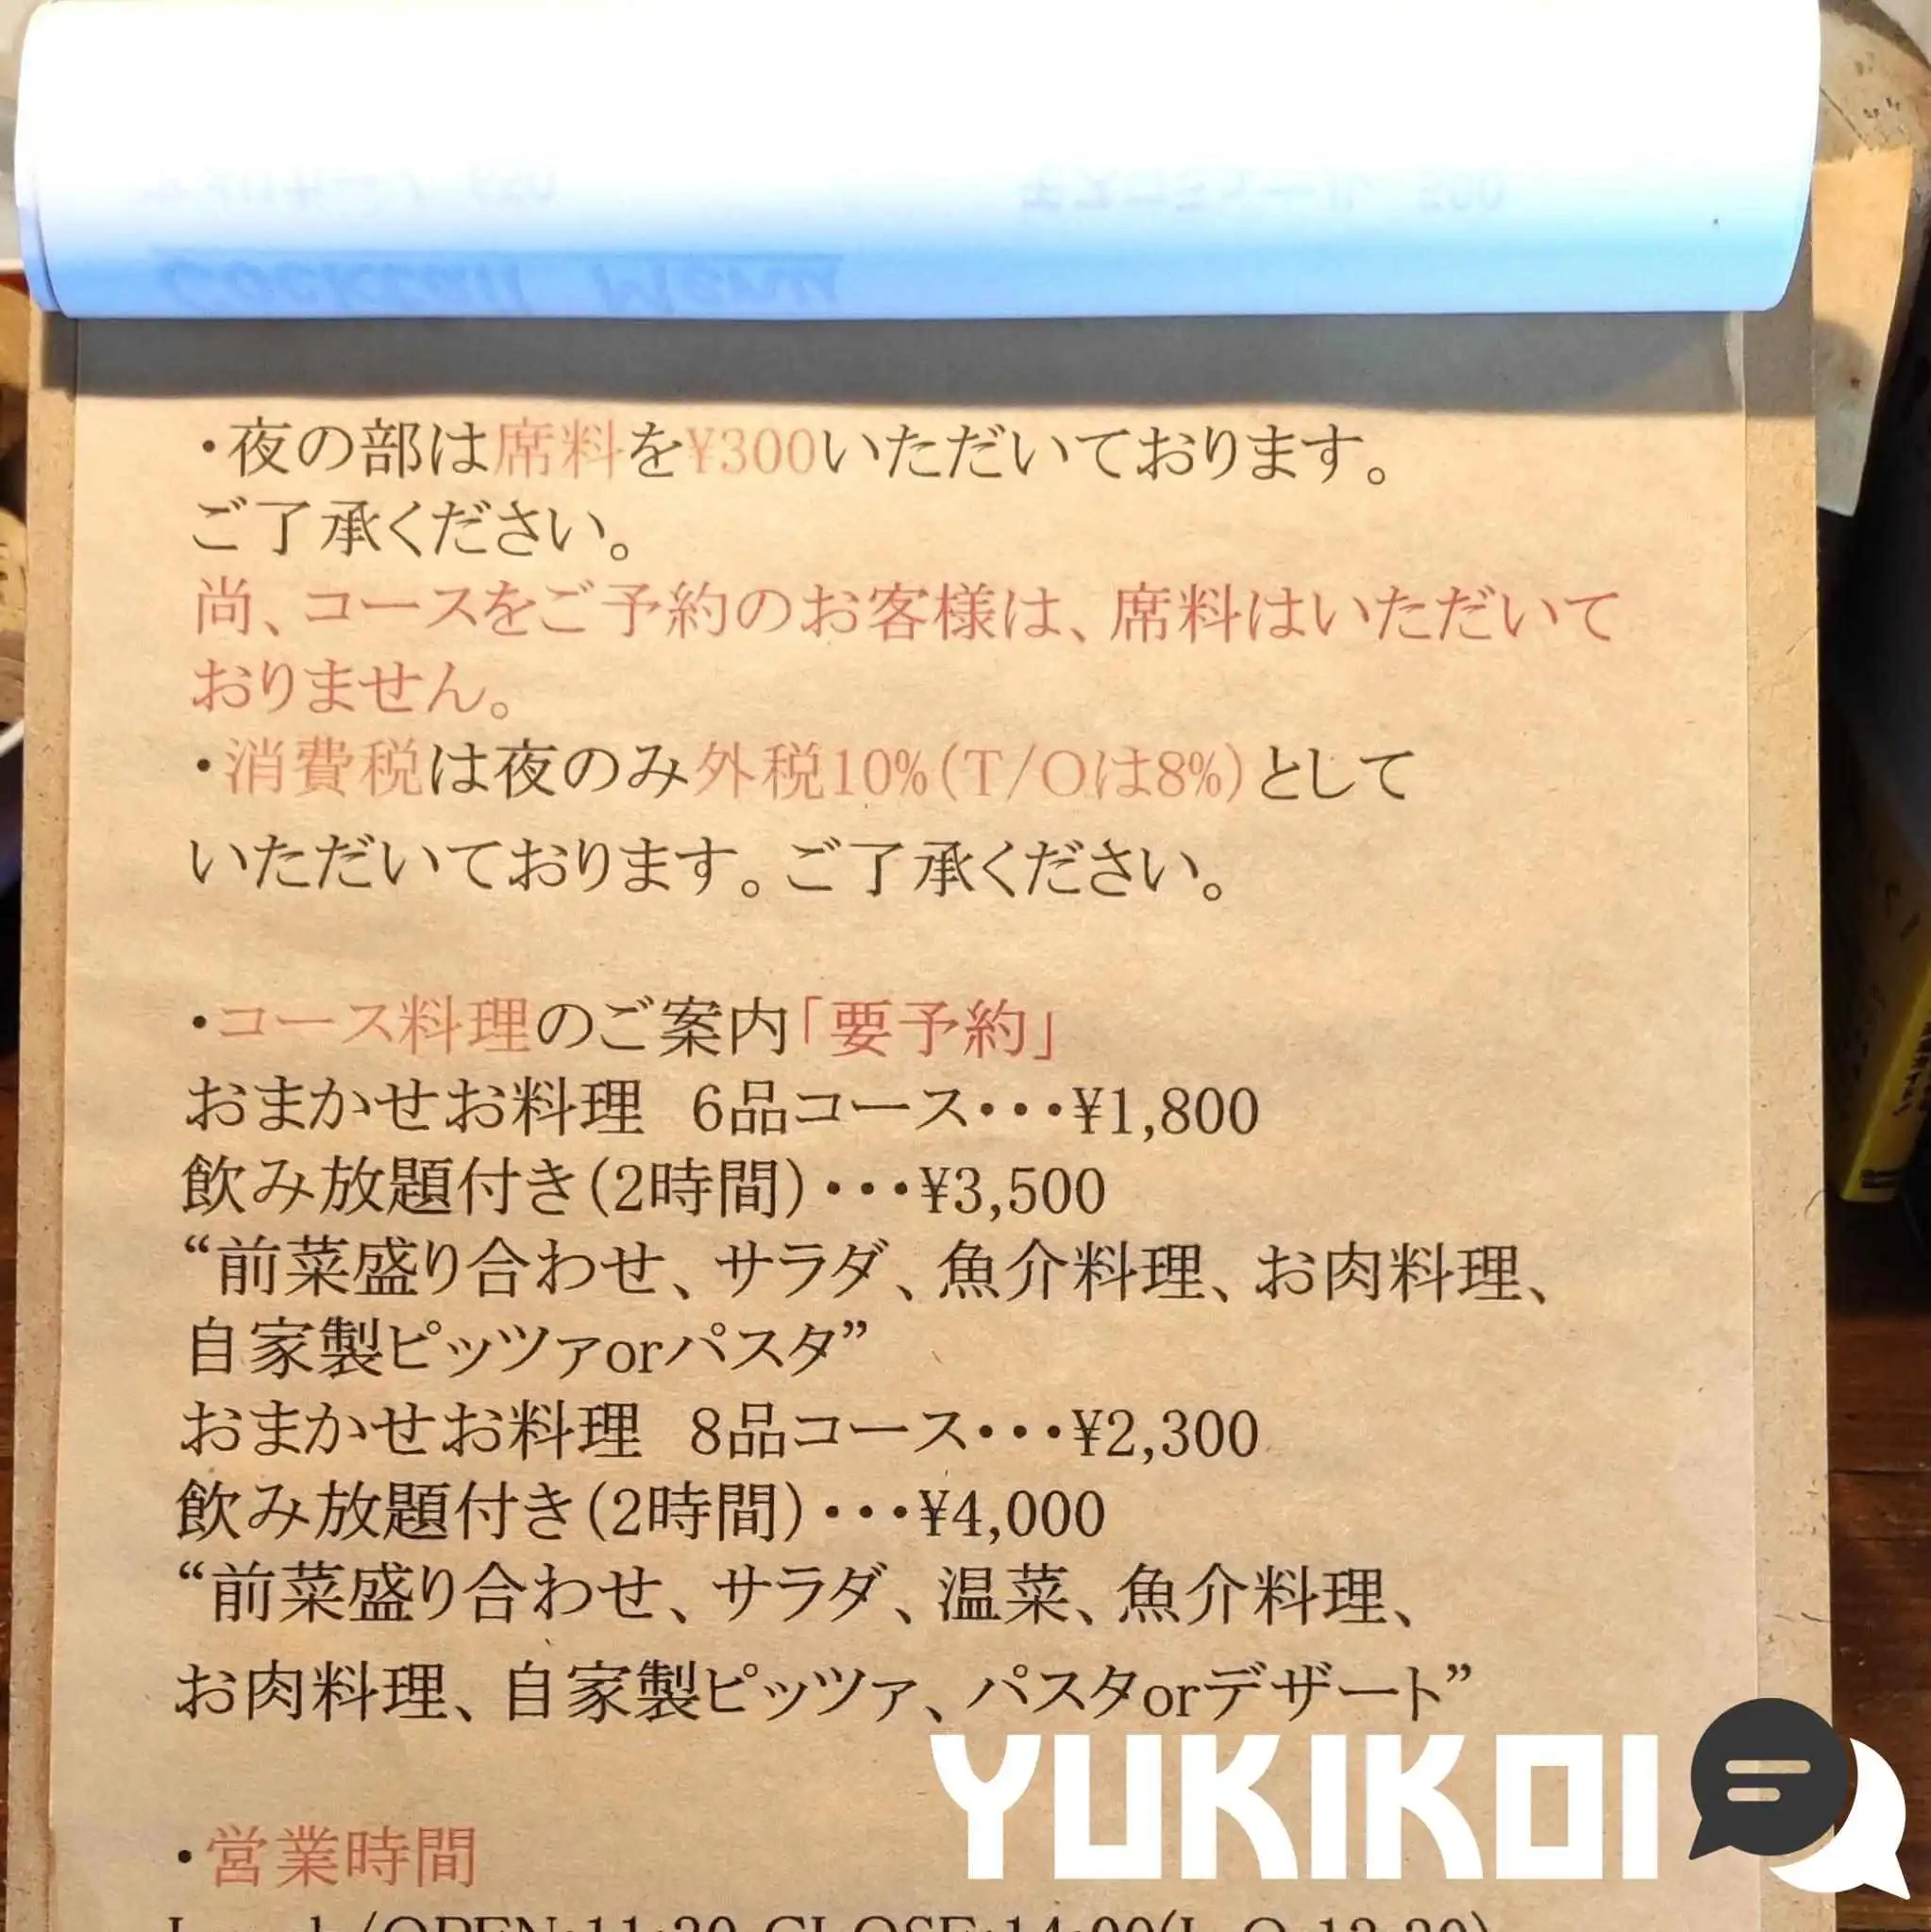 Cocktail Menu
・夜の部は席料を¥300いただいております。
ご了承ください。
尚、コースをご予約のお客様は、席料はいただいて
おりません。
・消費税は夜のみ外税10%(T/Oは8%)として
いただいております。ご了承ください。
・コース料理のご案内「要予約」
おまかせお料理　6品コース・・・¥1,800
飲み放題付き(2時間)・・・¥3,500
“前菜盛り合わせ、サラダ、魚介料理、お肉料理、
自家製ピッツァorパスタ”
おまかせお料理　8品コース・・・¥2,300
飲み放題付き(2時間)・・・¥4,000
“前菜盛り合わせ、サラダ、温菜、魚介料理、
お肉料理、自家製ピッツァ、パスタorデザート”
YUKIKOI
・営業時間
Lunch/OPEN:11:30 CLOSE:14:00(L.O.13:30)